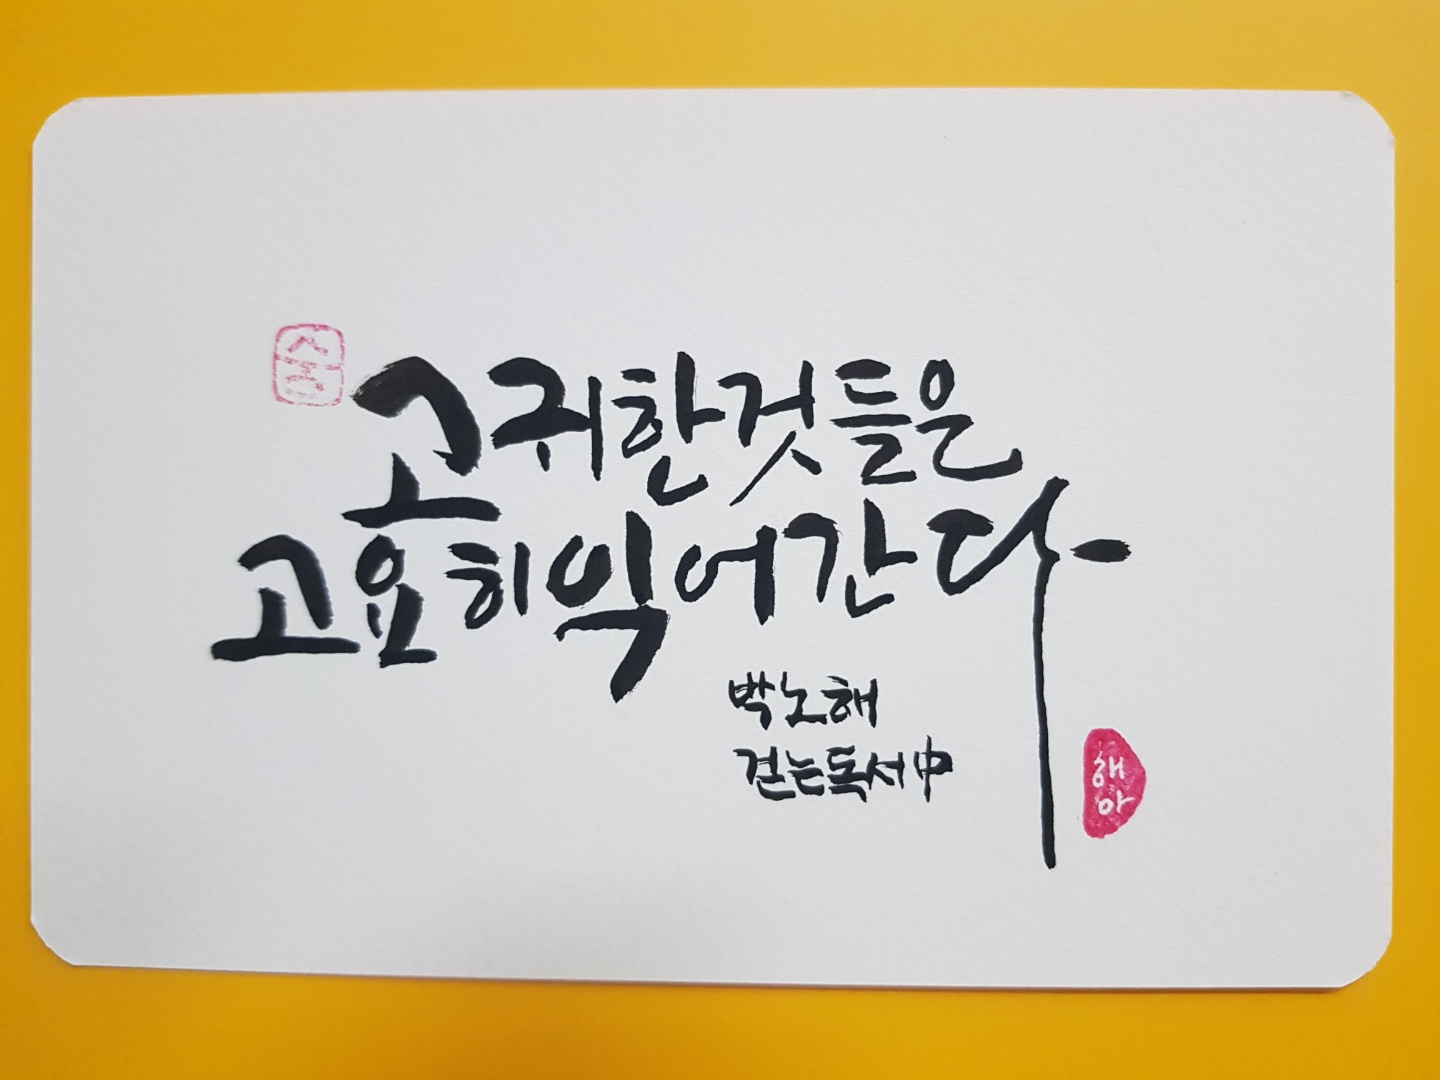 고귀한것들은
고요히익어간다
박노해
걷는독서中
해
아